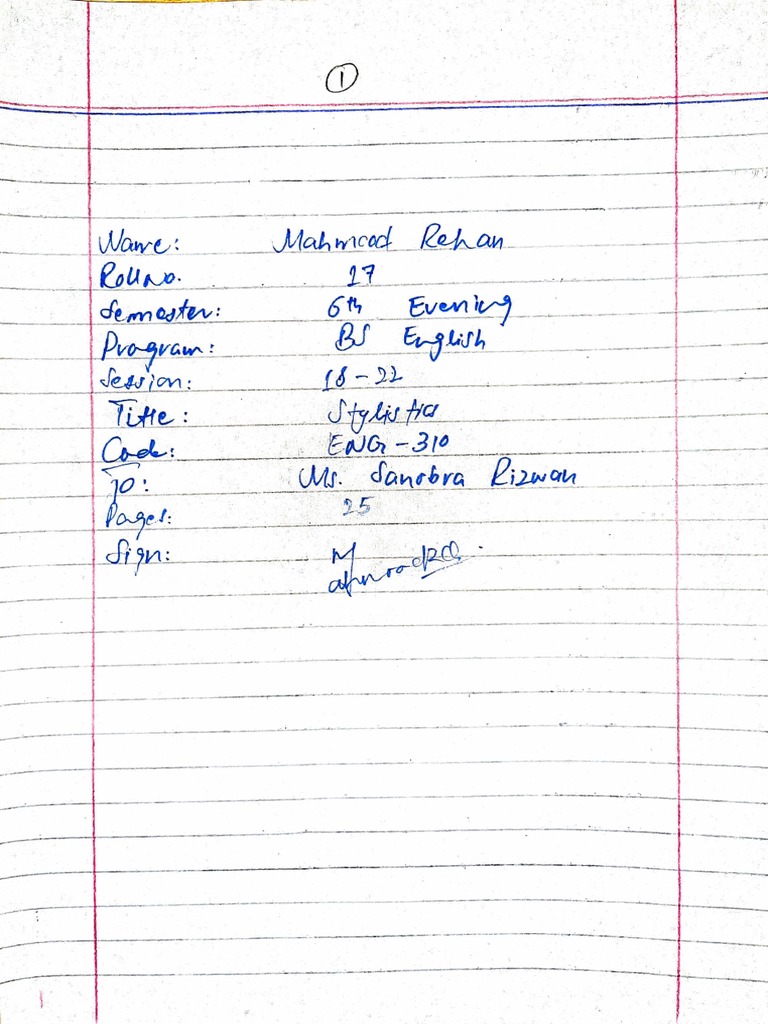 1
Name: Mahmood Rehan
Roll No. 17
Semester: 6th Evening
Program: BS English
Session: 18-22
Title: Stylistics
Code: ENG-310
To: Ms. Sanobra Rizwan
Pages: 25
Sign: M